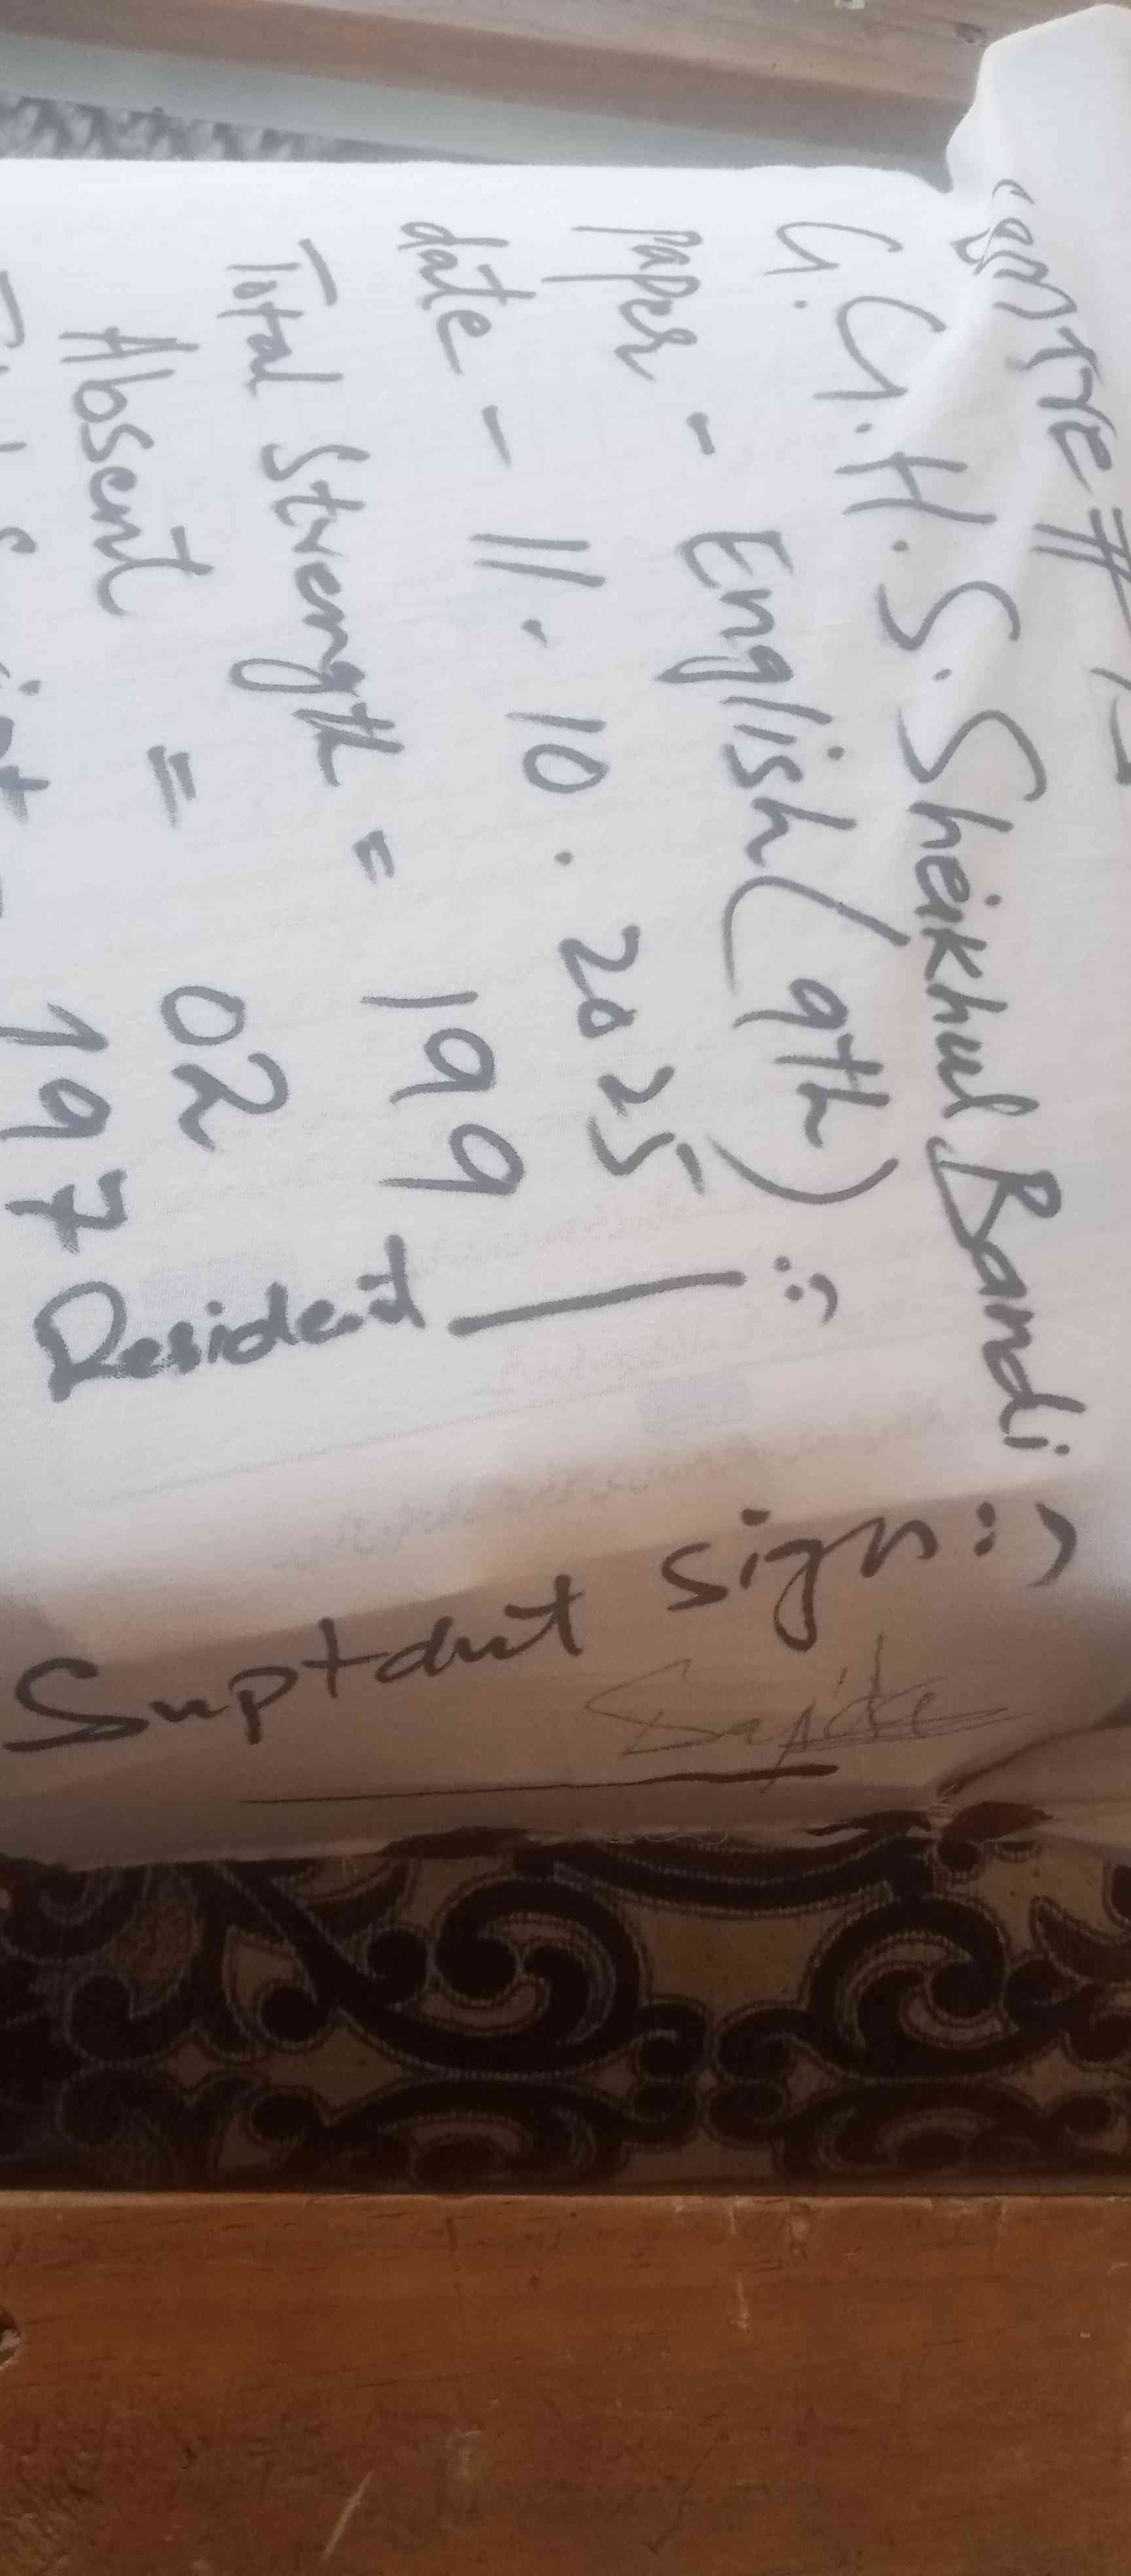 Centre #
G.G.H.S. Sheikhul Bandi
paper - English (9th)
date - 11.10.2025
Total Strength = 199
Absent = 02
197
Resident :
Suptdnt sign :